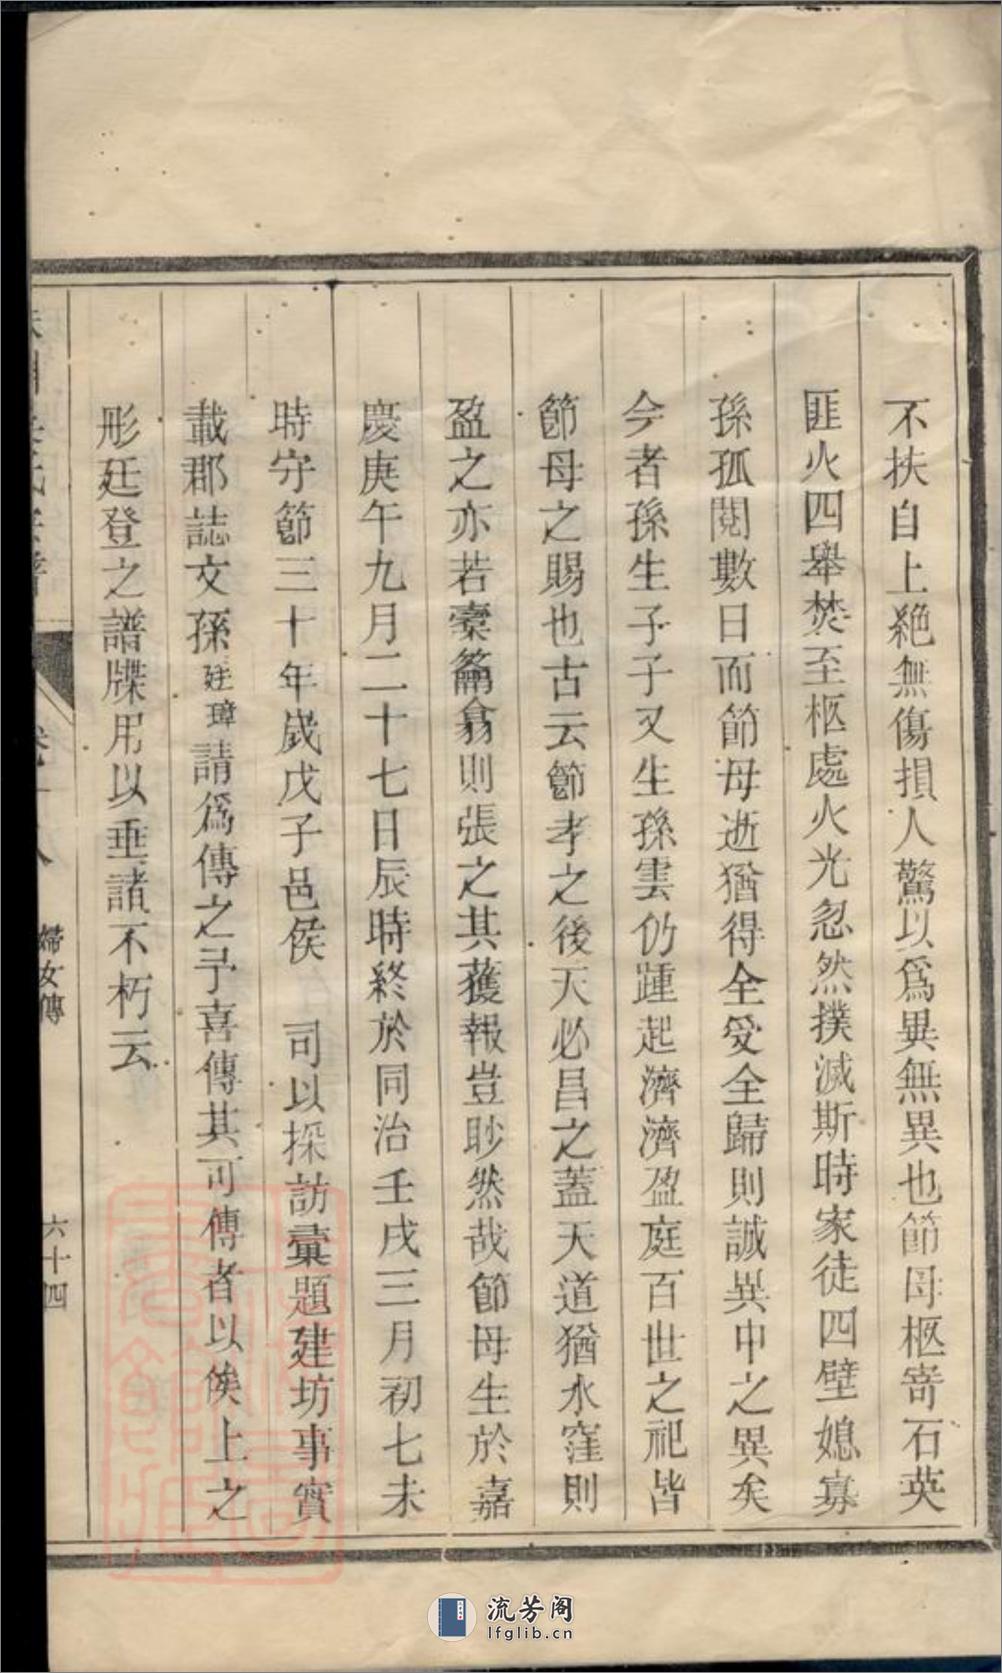 不扶自上絕無傷損人驚以爲異無異也節母柩寄石英
匪火四舉焚至柩處火光忽然撲滅斯時家徒四壁媳寡
孫孤閱數日而節母逝猶得全受全歸則誠異中之異矣
今者孫生子子又生孫雲仍踵起濟濟盈庭百世之祀皆
節母之賜也古云節孝之後天必昌之蓋天道猶水窪則
盈之亦若橐籥翕則張之其獲報豈眇然哉節母生於嘉
慶庚午九月二十七日辰時終於同治壬戌三月初七未
時守節三十年歲戊子邑侯 司以採訪彙題建坊事實
載郡誌文孫廷璋請爲傳之予喜傳其可傳者以俟上之
彤廷登之譜牒用以垂諸不朽云
婦女傳
六十四
流芳阁
lfglib.cn